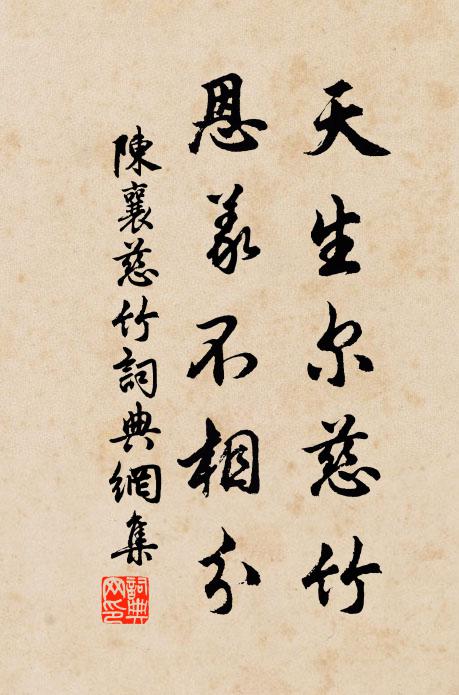 天生尔慈竹
恩義不相分
陳襄慈竹詞典網集
詞典